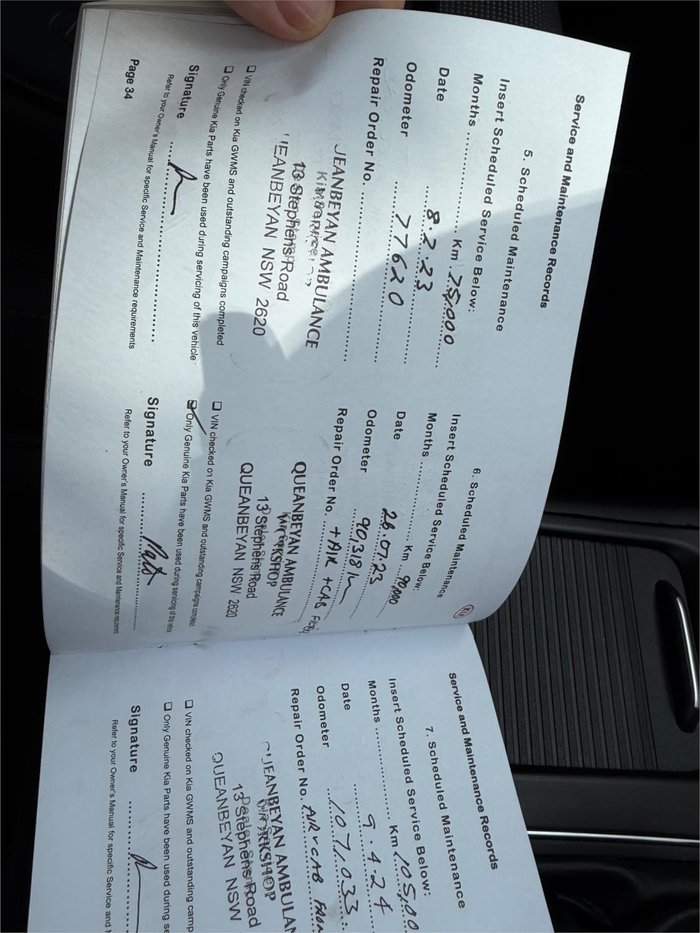 Service and Maintenance Records
5. Scheduled Maintenance
Insert Scheduled Service Below:
Months ............ Km 75,000
Date 8.2.23
Odometer 77620
Repair Order No. ............
JEANBEYAN AMBULANCE
13 Stephens Road
UEANBEYAN NSW 2620
☐ VIN checked on Kia GWMS and outstanding campaigns completed
☐ Only Genuine Kia Parts have been used during servicing of this vehicle
Signature ............
Refer to your Owner's Manual for specific Service and Maintenance requirements
Page 34
6. Scheduled Maintenance
Insert Scheduled Service Below:
Months ............ Km 90,000
Date 26.07.23
Odometer 90,318
Repair Order No. +AIR +CAB
QUEANBEYAN AMBULANCE
WORKSHOP
13 Stephens Road
QUEANBEYAN NSW 2620
☐ VIN checked on Kia GWMS and outstanding campaigns completed
☑ Only Genuine Kia Parts have been used during servicing of this vehicle
Signature ............
Refer to your Owner's Manual for specific Service and Maintenance requirements
Service and Maintenance Records
7. Scheduled Maintenance
Insert Scheduled Service Below:
Months ............ Km 105,00
Date 9.4.24
Odometer 107,033
Repair Order No. AIR + CAB FROM
UEANBEYAN AMBULAN
WORKSHOP
13 Stephens Road
QUEANBEYAN NSW
☐ VIN checked on Kia GWMS and outstanding camp
☐ Only Genuine Kia Parts have been used during se
Signature ............
Refer to your Owner's Manual for specific Service and